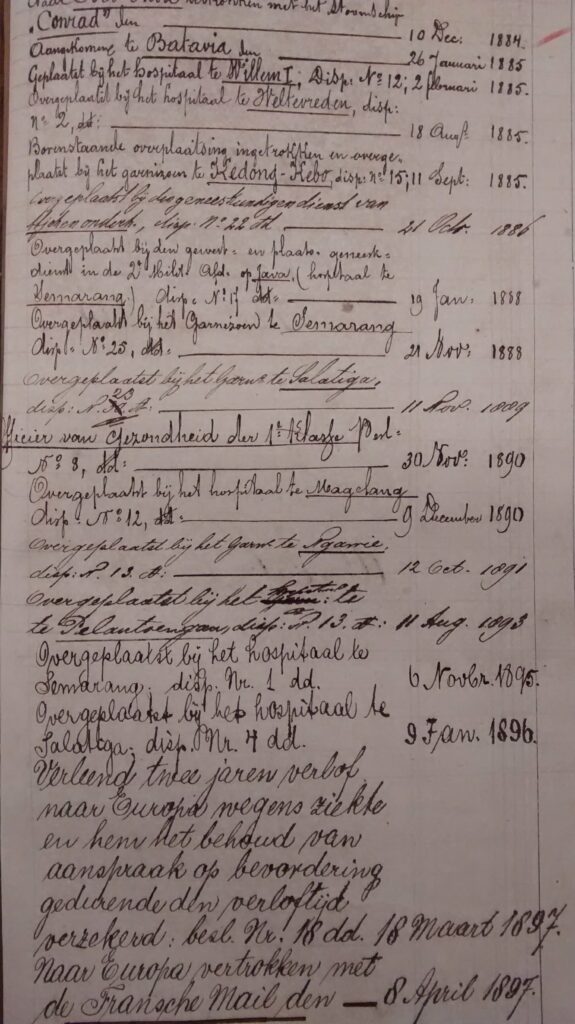 Naar Oost Indië vertrokken met het Stoomschip
"Conrad" den 10 Dec: 1884.
Aangekomen te Batavia den 26 Januari 1885
Geplaatst bij het hospitaal te Willem I, Disp: No 12; 2 februari 1885.
Overgeplaatst bij het hospitaal te Weltevreden, disp:
no 2, dd: 18 Augt 1885.
Bovenstaande overplaatsing ingetrokken en overge-
plaatst bij het garnizoen te Kedong-Kebo, disp: no 15, 11 Sept: 1885.
Overgeplaatst bij den geneeskundigen dienst van
disp. No 22 dd 21 Octr. 1886
Overgeplaatst bij den gewest- en plaats. geneesk-
dienst in de 2e Milit. Afd. op Java, (hospitaal te
Semarang) disp. No 17 dd= 19 Jan. 1888
Overgeplaatst bij het Garnizoen te Semarang
disp= No 25, dd= 21 Nov: 1888
Overgeplaatst bij het Garnn te Salatiga,
disp: N. 23 dd: 11 Nov. 1889
Officier van Gezondheid der 1e Klasse, Besl=
No 8, dd: 30 Nov: 1890
Overgeplaatst bij het hospitaal te Magelang
disp. No 12, dd= 9 December 1890
Overgeplaatst bij het Garnn te Ngawie,
disp: N. 13. dd: 12 Oct. 1891
Overgeplaatst bij het te
te Pelantoengan, disp: N. 13. dd: 11 Aug. 1893
Overgeplaatst bij het hospitaal te
Semarang: disp. Nr. 1 dd. 6 Novbr. 1895.
Overgeplaatst bij het hospitaal te
Salatega: disp. Nr. 4 dd. 9 Jan. 1896.
Verleend twee jaren verlof
naar Europa wegens ziekte
en hem het behoud van
aanspraak op bevordering
gedurende den verloftijd
verzekerd: besl. Nr. 18 dd. 18 Maart 1897.
Naar Europa vertrokken met
de Fransche Mail den 8 April 1897.